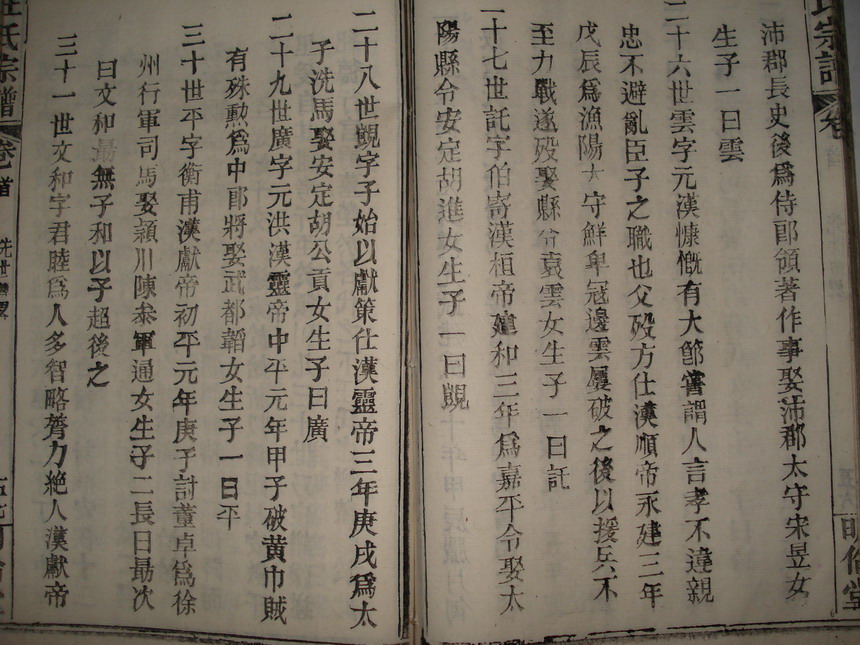 氏宗譜 卷 首
明倫堂
沛郡長史後爲侍郎領著作事娶沛郡太守宋昱女
生子一曰雲
二十六世雲字元漢慷慨有大節嘗謂人言孝不違親
忠不避亂臣子之職也父殁方仕漢順帝永建三年
戊辰爲漁陽太守鮮卑冦邊雲屢破之後以援兵不
至力戰遂殁娶縣令袁雲女生子一曰託
二十七世託字伯寄漢桓帝建和三年爲嘉平令娶太
陽縣令安定胡進女生子一曰覬
二十八世覬字子始以獻策仕漢靈帝三年庚戌爲太
子洗馬娶安定胡公貢女生子曰廣
二十九世廣字元洪漢靈帝中平元年甲子破黄巾賊
有殊勳爲中郎將娶武都韜女生子一曰平
三十世平字衡甫漢獻帝初平元年庚子討董卓爲徐
州行軍司馬娶潁川陳叅軍通女生子二長曰最次
曰文和最無子和以子超後之
三十一世文和字君睦爲人多智略膂力絶人漢獻帝
氏宗譜 卷 首 先世